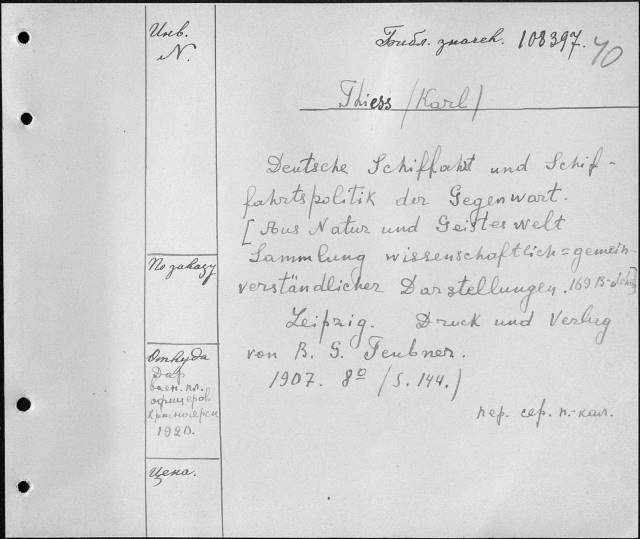 Инв.
N.
Библ. значек. 108397. 40
Thiess (Karl)
Deutsche Schiffahrt und Schif-
fahrtspolitik der Gegenwart.
[Aus Natur und Geisteswelt
Sammlung wissenschaftlich=gemein-
verständlicher Darstellungen. 169
Leipzig. Druck und Verlag
von B. G. Teubner.
1907. 8º (S. 144.)
пер. сер. п.-кал.
По заказу
Откуда
Дар
воен. пл.
офицеров
Красноярск
1920.
Цена.